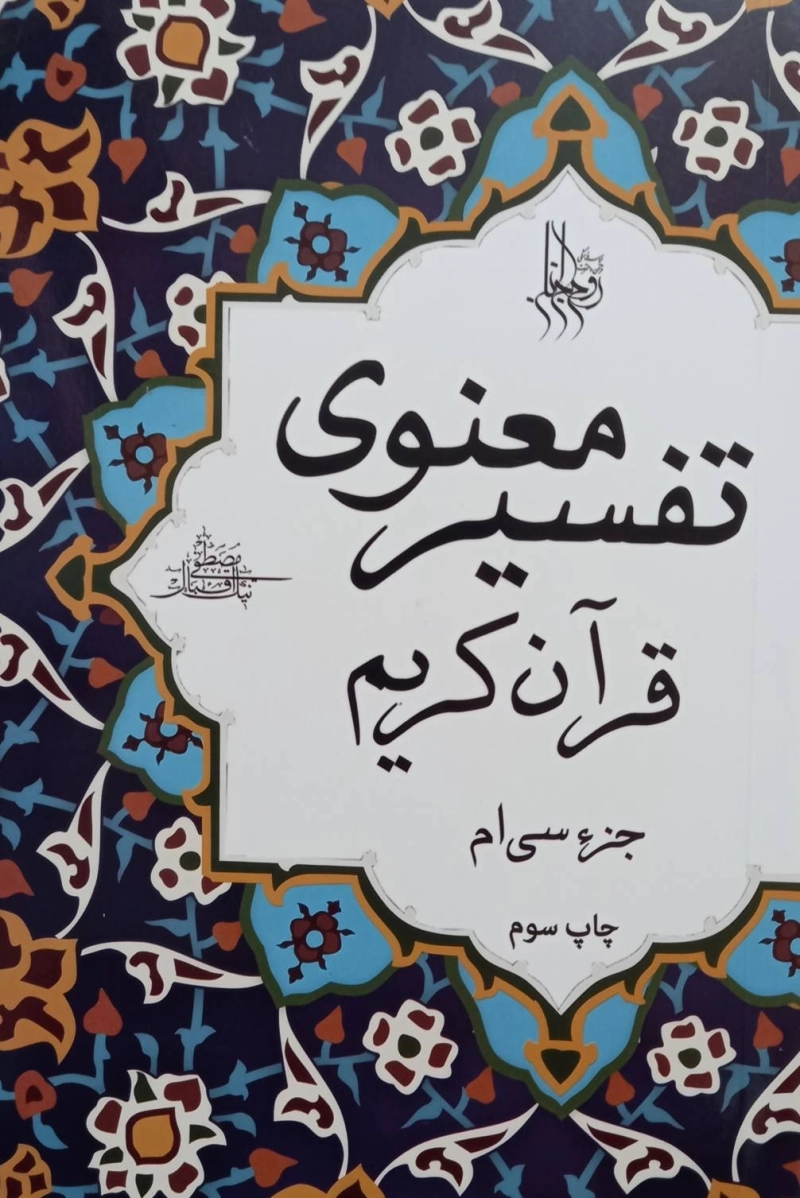 روح‌الجنان
تفسیر معنوی
مصطفی نیک اقبال
قرآن کریم
جزء سی‌ام
چاپ سوم